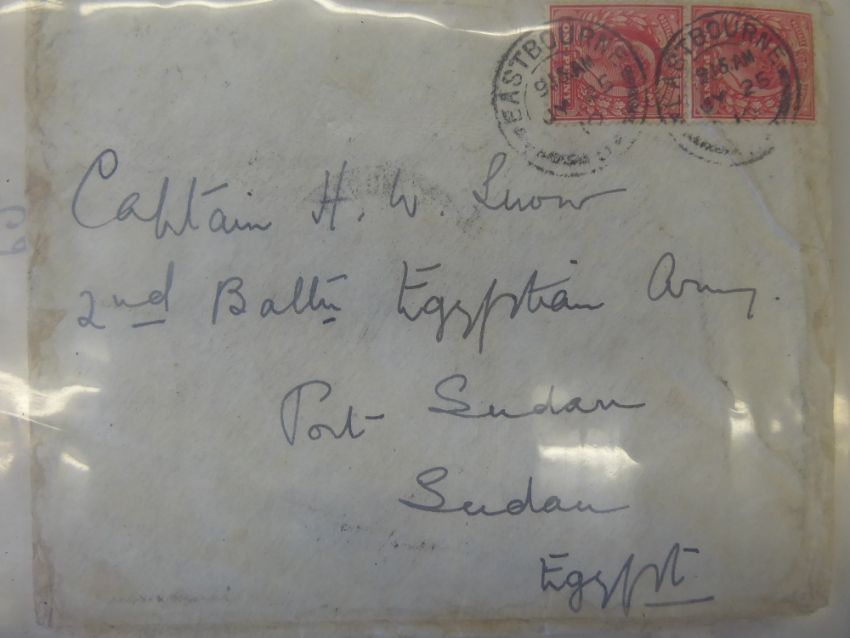 EASTBOURNE
9 15 AM
EASTBOURNE
9 15 AM
25
Captain H. W. Snow
2nd Battn Egyptian Army.
Port Sudan
Sudan
Egypt